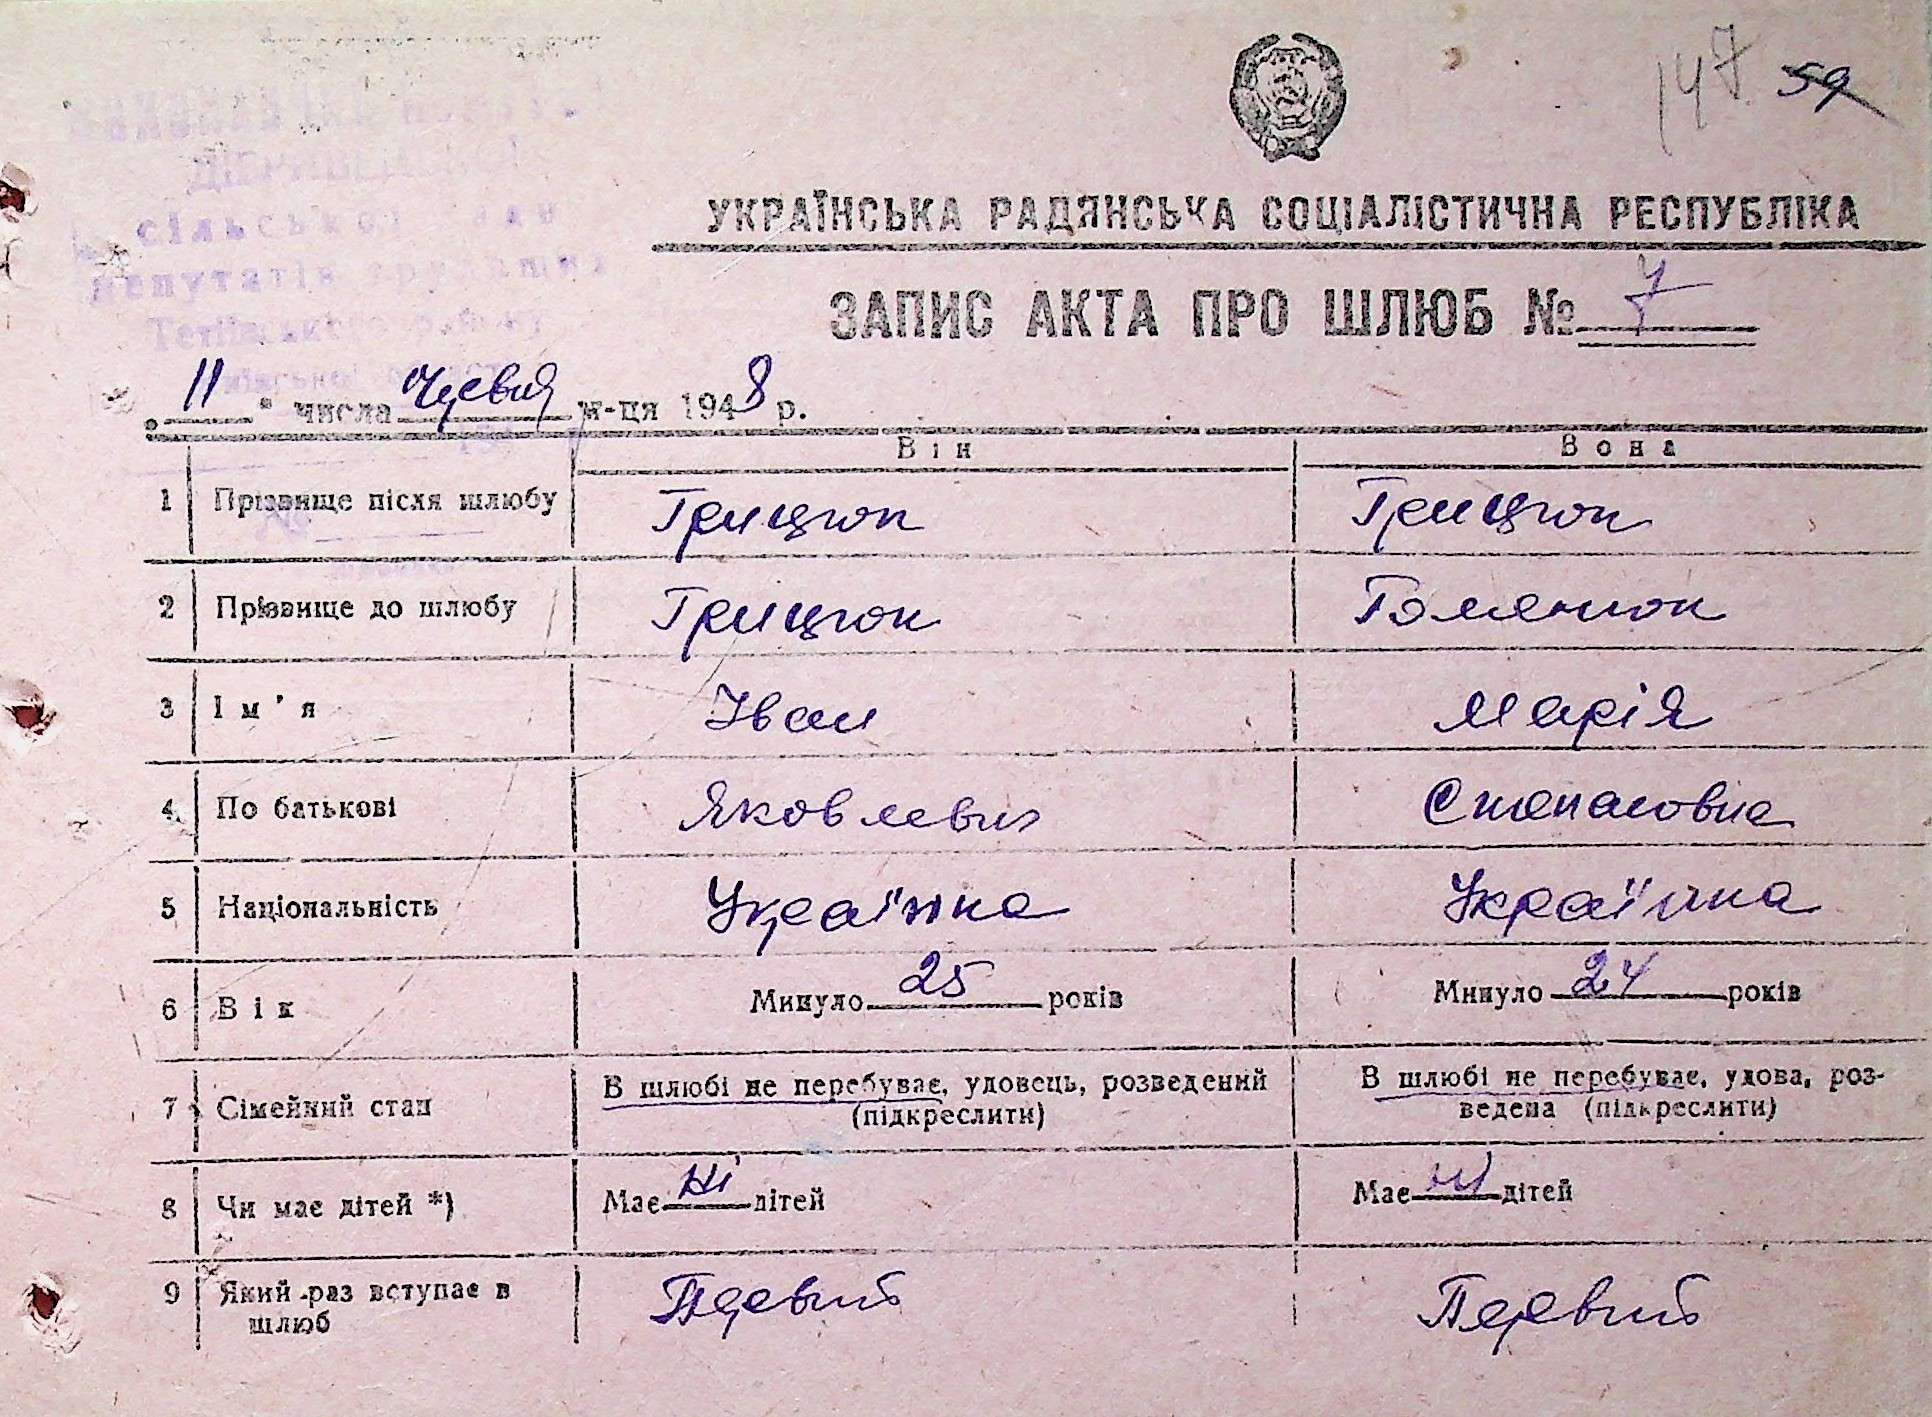 147 59
УКРАЇНСЬКА РАДЯНСЬКА СОЦІАЛІСТИЧНА РЕСПУБЛІКА
сільської ради
депутатів трудящих
ЗАПИС АКТА ПРО ШЛЮБ № 7
"11" числа м-ця 1948 р.
Він Вона
1 Прізвище після шлюбу Грицюк Грицюк
2 Прізвище до шлюбу Грицюк Гоменюк
3 Ім'я Іван Марія
4 По батькові Яковлевич Степановна
5 Національність Українка Українка
6 Вік Минуло 25 років Минуло 24 років
7 Сімейний стан В шлюбі не перебуває, удовець, розведений В шлюбі не перебуває, удова, роз-
(підкреслити) ведена (підкреслити)
8 Чи має дітей *) Має ні дітей Має ні дітей
9 Який раз вступає в Первий Первий
шлюб